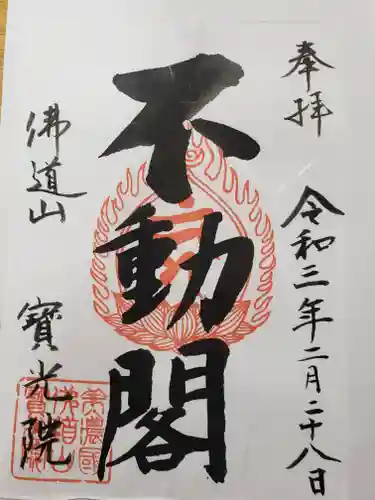 奉拝
令和三年二月二十八日
不動閣
佛道山
寳光院